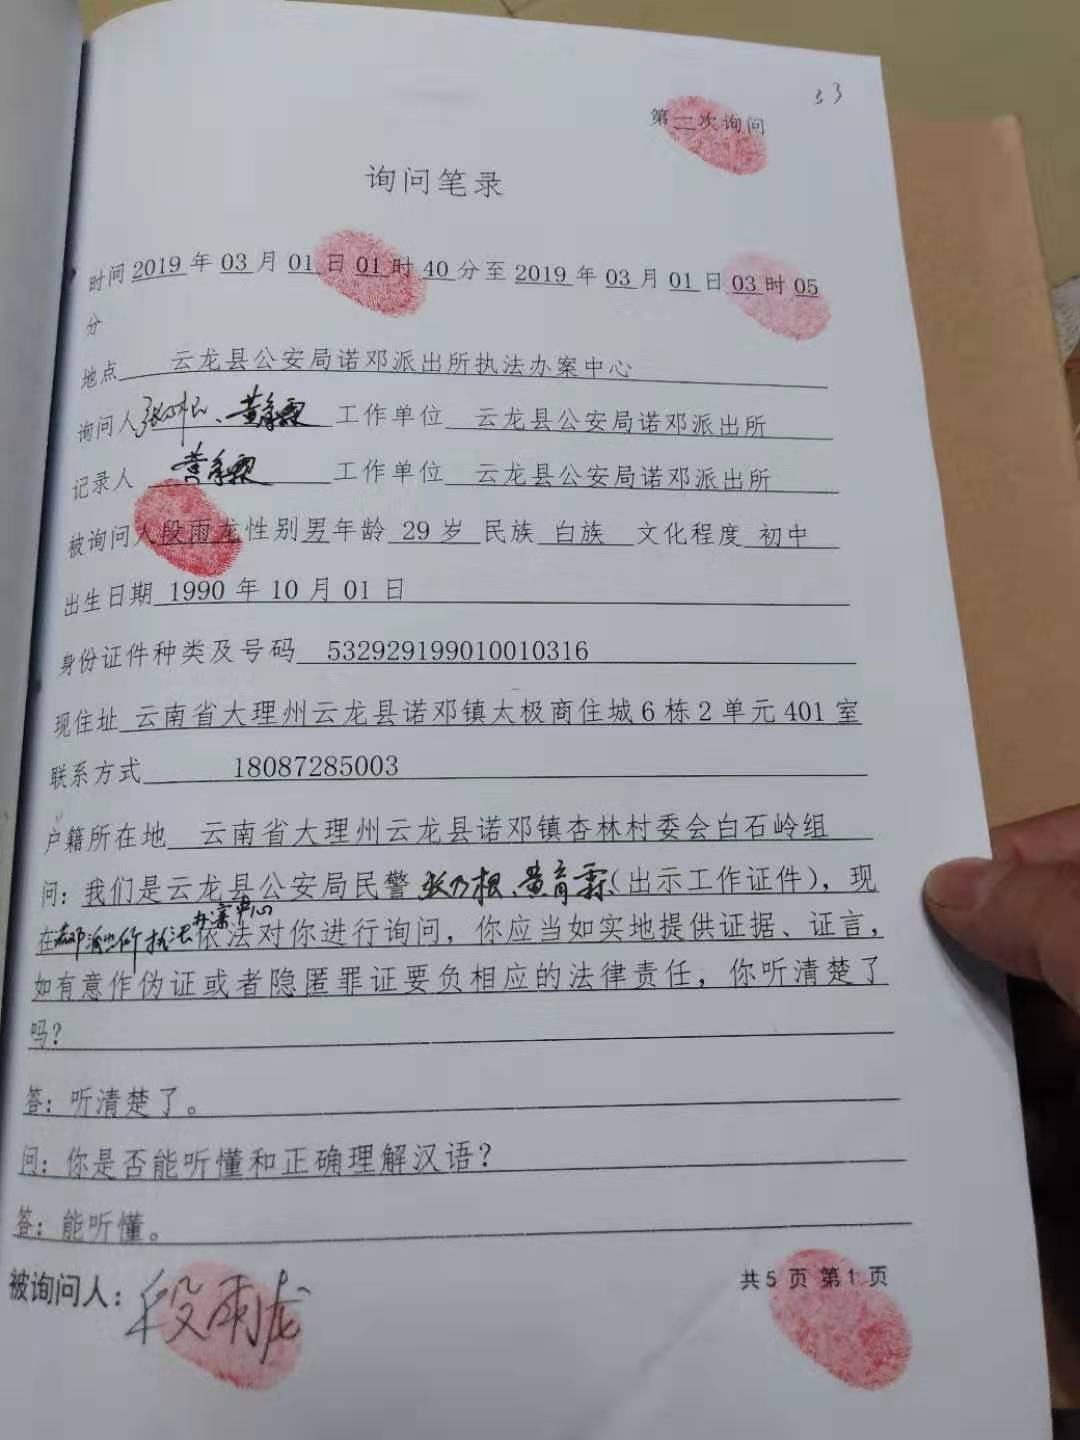 33
第一次询问
询问笔录
时间 2019 年 03 月 01 日 01 时 40 分至 2019 年 03 月 01 日 03 时 05
分
地点 云龙县公安局诺邓派出所执法办案中心
询问人 张乃根、黄育霖 工作单位 云龙县公安局诺邓派出所
记录人 黄育霖 工作单位 云龙县公安局诺邓派出所
被询问人 段雨龙 性别 男 年龄 29 岁 民族 白族 文化程度 初中
出生日期 1990 年 10 月 01 日
身份证件种类及号码 532929199010010316
现住址 云南省大理州云龙县诺邓镇太极商住城 6 栋 2 单元 401 室
联系方式 18087285003
户籍所在地 云南省大理州云龙县诺邓镇杏林村委会白石岭组
问：我们是云龙县公安局民警张乃根、黄育霖（出示工作证件），现
在诺邓派出所执法办案中心依法对你进行询问，你应当如实地提供证据、证言，
如有意作伪证或者隐匿罪证要负相应的法律责任，你听清楚了
吗？
答：听清楚了。
问：你是否能听懂和正确理解汉语？
答：能听懂。
被询问人：段雨龙
共 5 页 第 1 页